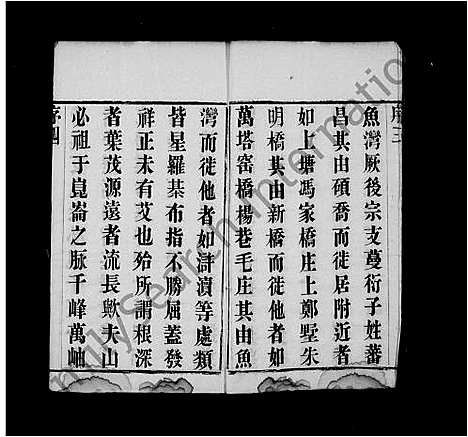 序三
魚灣厥後宗支蔓衍子姓蕃
昌其由碩喬而徙居附近者
如上塘馮家橋庄上鄭墅朱
明橋其由新橋而徙他者如
萬塔窑橋楊巷毛庄其由魚
灣而徙他者如滸瀆等處類
皆星羅棊布指不勝屈蓋發
祥正未有艾也殆所謂根深
者葉茂源遠者流長歟夫山
必祖于崑崙之脉千峰萬岫
序四
FamilySearch International